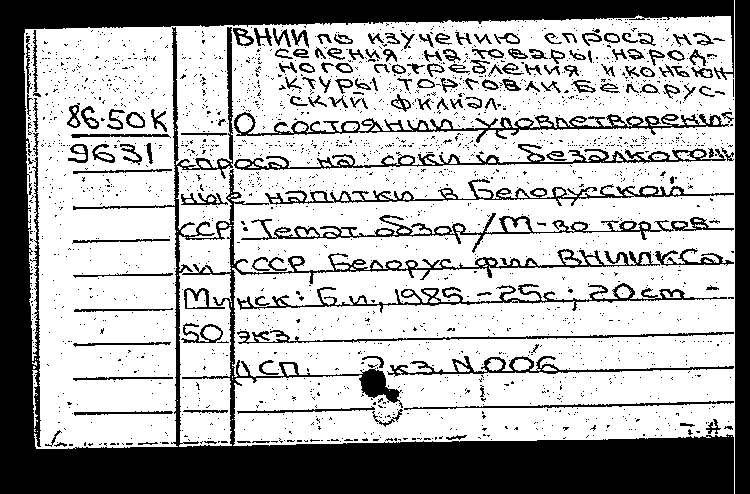 ВНИИ по изучению спроса на-
селения на товары народ-
ного потребления и конъюн-
ктуры торговли. Белорус-
ский филиал.
86-50К О состоянии удовлетворения
9631 спроса на соки и безалкоголь
ные напитки в Белорусской
ССР: Темат. обзор / М-во торгов-
ли СССР, Белорус. фил ВНИИКСа.
Минск: Б.и., 1985. - 25с ; 20cm -
50 экз.
ДСП. Экз. N 006